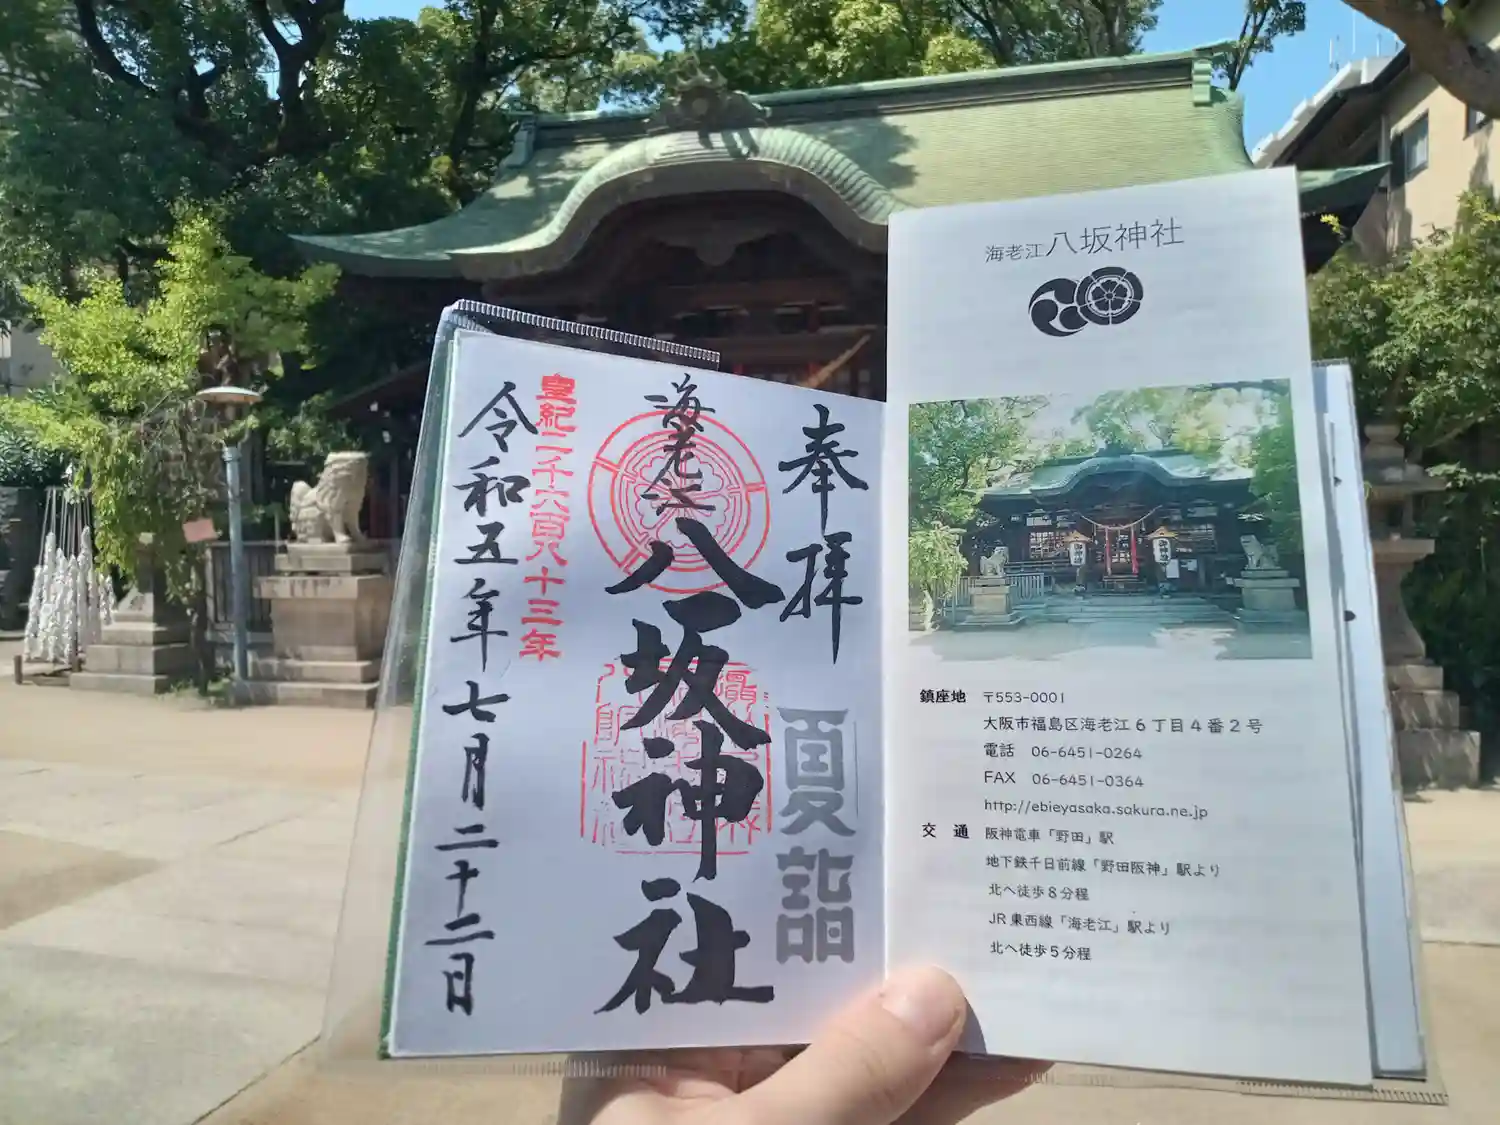 奉拝
夏詣
海老江
八坂神社
皇紀二千六百八十三年
令和五年七月二十二日
海老江八坂神社
鎮座地 〒553-0001
大阪市福島区海老江6丁目4番2号
電話 06-6451-0264
FAX 06-6451-0364
http://ebieyasaka.sakura.ne.jp
交通 阪神電車「野田」駅
地下鉄千日前線「野田阪神」駅より
北へ徒歩8分程
JR東西線「海老江」駅より
北へ徒歩5分程